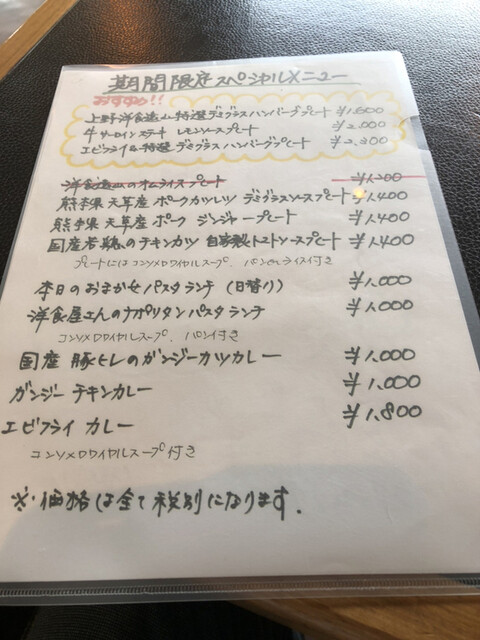 期間限定スペシャルメニュー
おすすめ!!
上野洋食遠山特選デミグラスハンバーグプレート ¥1,500
牛サーロインステーキ レモンソースプレート ¥2,000
エビフライ&特選デミグラスハンバーグプレート ¥2,300
洋食遠山のオムライスプレート ¥1,200
熊本県天草産ポークカツレツ デミグラスソースプレート ¥1,400
熊本県天草産ポーク ジンジャープレート ¥1,400
国産若鶏のチキンカツ 自家製トマトソースプレート ¥1,400
プレートにはコンソメロワイヤルスープ、パンorライス付き
本日のおまかせパスタランチ (日替り) ¥1,000
洋食屋さんのナポリタンパスタランチ ¥1,000
コンソメロワイヤルスープ、パン付き
国産豚ヒレのガンジーカツカレー ¥1,000
ガンジーチキンカレー ¥1,000
エビフライカレー ¥1,800
コンソメロワイヤルスープ付き
※価格は全て税別になります.